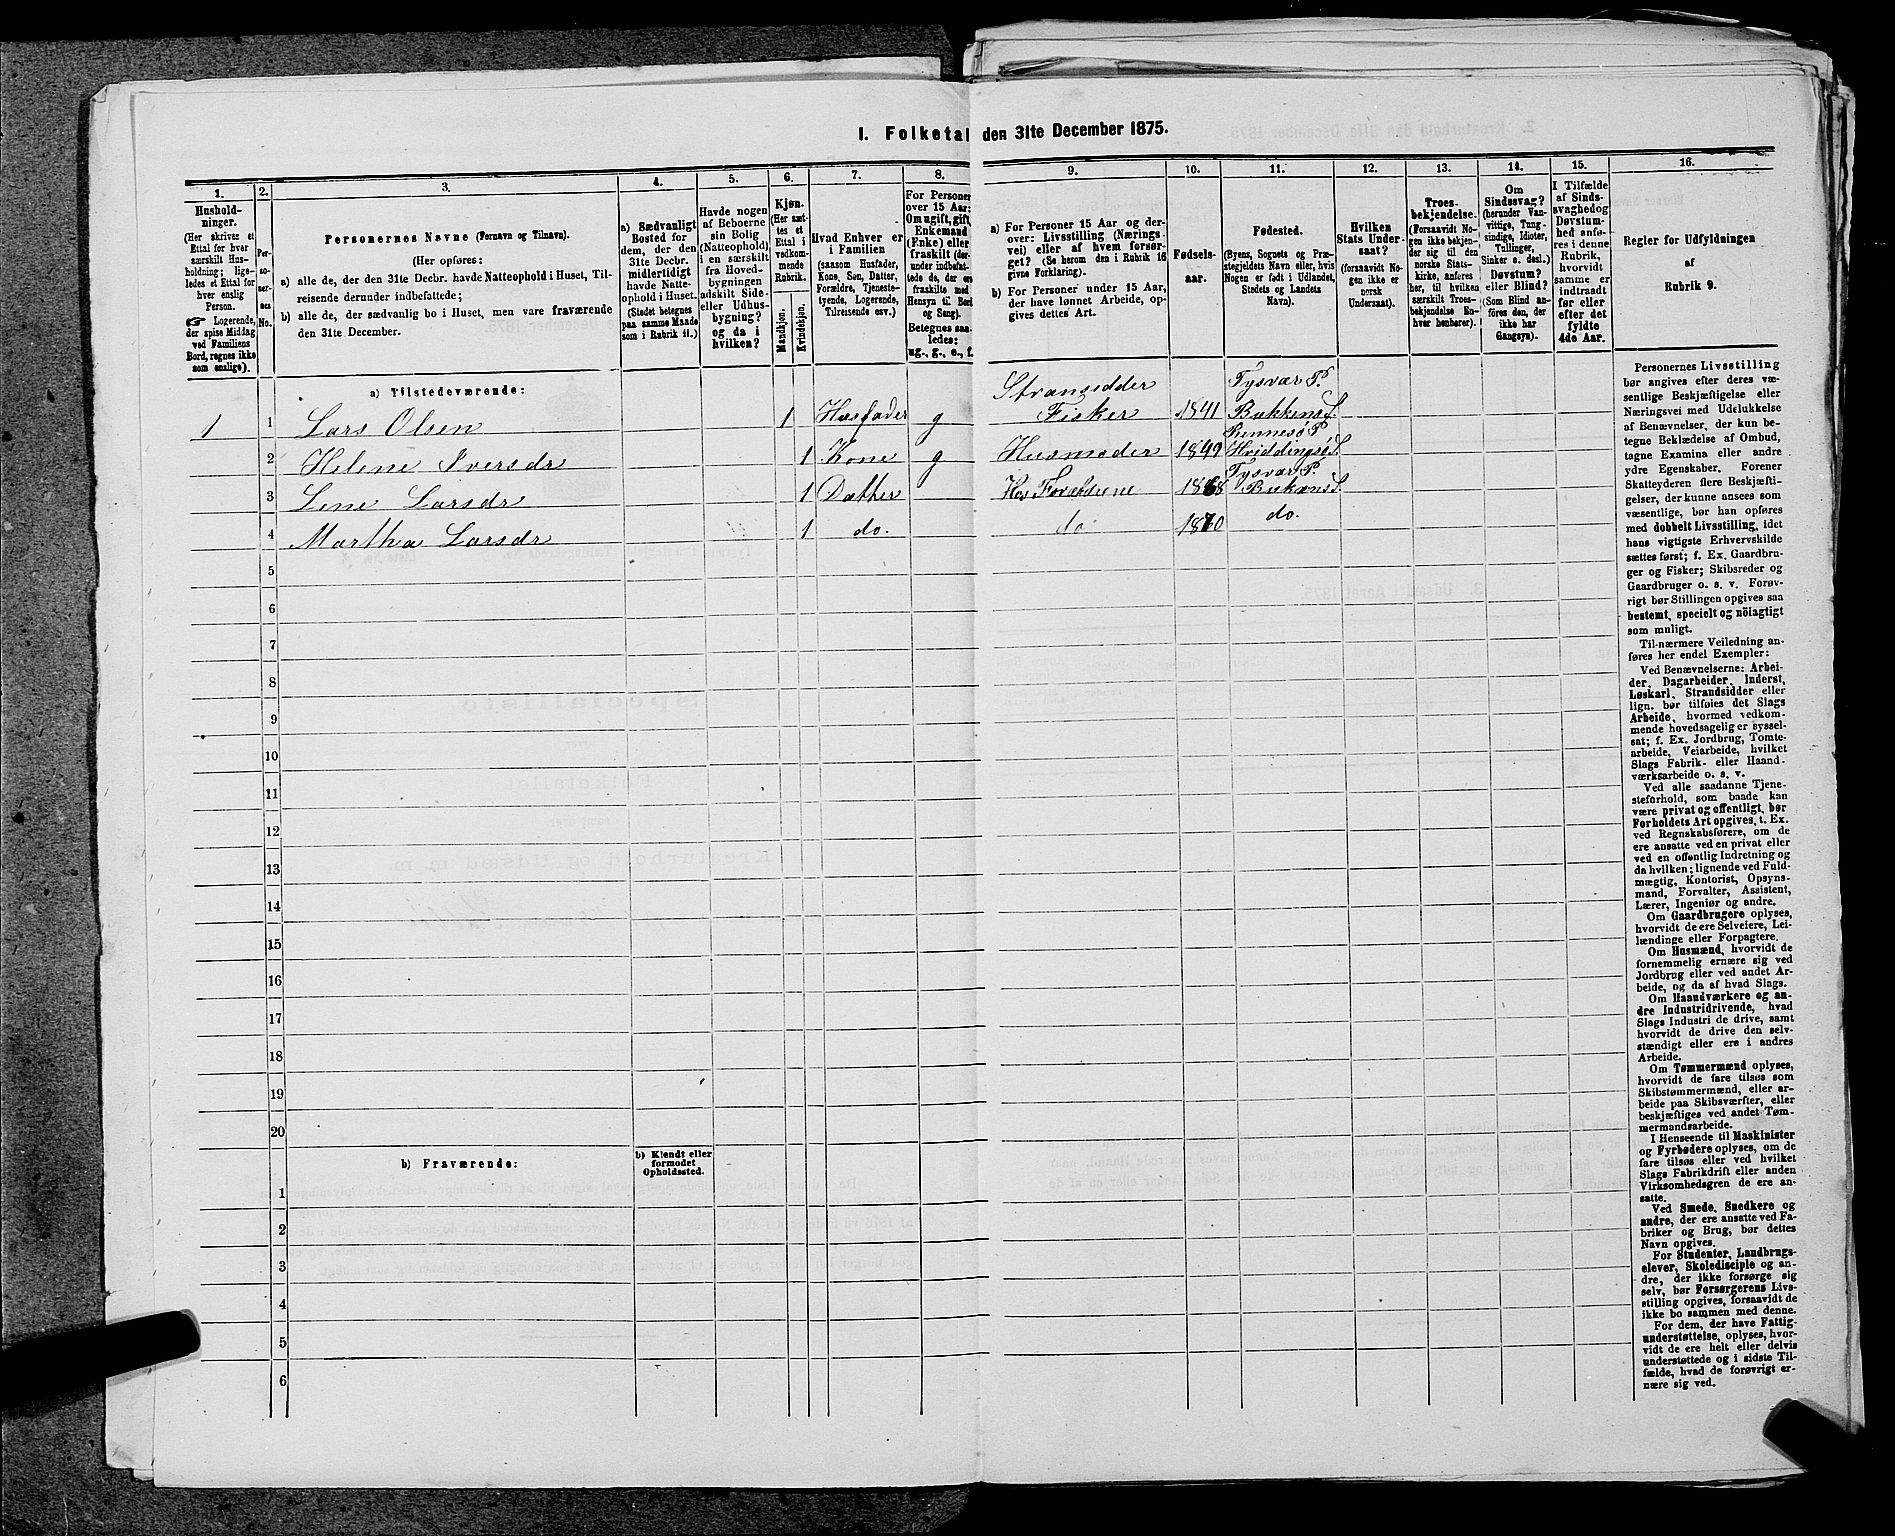 I. Folketal den 31te December 1875.
1.
2.
3.
4.
5.
6.
7.
8.
9.
10.
11.
12.
13.
14.
15.
16.
Hushold-
ninger.
(Her skrives et
Ettal for hver
særskilt Hus-
holdning; lige-
ledes et Ettal for
hver enslig
Person.
☞ Logerende,
der spise Middag
ved Familiens
Bord, regnes ikke
som enslige).
Per-
so-
ner-
nes
No.
Personernes Navne (Fornavn og Tilnavn).
(Her opføres:
a) alle de, der den 31te Decbr. havde Natteophold i Huset, Til-
reisende derunder indbefattede;
b) alle de, der sædvanlig bo i Huset, men vare fraværende
den 31te December.
a) Sædvanligt
Bosted for
dem, der den
31te Decbr.
midlertidigt
havde Natte-
ophold i Huset.
(Stedet betegnes
paa samme Maade
som i Rubrik 11.)
Havde nogen
af Beboerne
sin Bolig
(Natteophold)
i en særskilt
fra Hoved-
bygningen
adskilt Side-
eller Udhus-
bygning?
og da i
hvilken?
Kjøn.
(Her sæt-
tes et
Ettal i
vedkom-
mende
Rubrik.
Mandkjøn.
Kvindekjøn.
Hvad Enhver er
i Familien
(saasom Husfader,
Kone, Søn, Datter,
Forældre, Tjeneste-
tyende, Logerende,
Tilreisende osv.)
For Personer
over 15 Aar:
Om ugift, gift,
Enkemand
(Enke) eller
fraskilt (der-
under indbefat-
tede de, der ere
fraskilte med
Hensyn til Bord
og Seng).
Betegnes saa-
ledes:
ug., g., e., f.
a) For Personer 15 Aar og der-
over: Livsstilling (Nærings-
vei) eller af hvem forsør-
get? (Se herom den i Rubrik 16
givne Forklaring).
b) For Personer under 15 Aar,
der have lønnet Arbeide, op-
gives dettes Art.
Fødsels-
aar.
Fødested.
(Byens, Sognets og Præ-
stegjeldets Navn eller, hvis
Nogen er født i Udlandet,
Stedets og Landets
Navn).
Hvilken
Stats Under-
saat?
(forsaavidt No-
gen ikke er
norsk
Undersaat).
Troes-
bekjendelse.
(Forsaavidt No-
gen ikke bekjen-
der sig til den
norske Stats-
kirke, anføres
her, til hvilken
særskilt Troes-
bekjendelse En-
hver henhører).
Om
Sindssvag?
(herunder Van-
vittige, Tung-
sindige, Idioter,
Tullinger,
Sinker o. desl.)
Døvstum?
eller Blind?
(Som Blind an-
føres den, der
ikke har
Gangsyn).
I Tilfælde
af Sinds-
svaghed og
Døvstum-
hed anfø-
res i denne
Rubrik,
hvorvidt
samme er
indtraadt
før eller
efter det
fyldte
4de Aar.
Regler for Udfyldningen
af
Rubrik 9.
a) Tilstedeværende:
1 1 Lars Olsen 1 Husfader g Strandsidder Fisker 1841 Tysvær P. Bukkens S.
2 Helene Iversdr 1 Kone g Husmoder 1849 Rennesø P. Hviddingsø S.
3 Lene Larsdr 1 Datter Hos Forældrene 1868 Tysvær P. Bukens S.
4 Martha Larsdr 1 do. do 1870 do.
5
6
7
8
9
10
11
12
13
14
15
16
17
18
19
20
b) Fraværende:
b) Kjendt eller
formodet
Opholdssted.
1
2
3
4
5
6
Personernes Livsstilling
bør angives efter deres væ-
sentlige Beskjæftigelse eller
Næringsvei med Udelukkelse
af Benævnelser, der kun be-
tegne Beklædelse af Ombud,
tagne Examina eller andre
ydre Egenskaber. Forener
Skatteyderen flere Beskjæfti-
gelser, der kunne ansees som
væsentlige, bør han opføres
med dobbelt Livsstilling, idet
hans vigtigste Erhvervskilde
sættes først; f. Ex. Gaardbru-
ger og Fisker; Skibsreder og
Gaardbruger o. s. v. Forøv-
rigt bør Stillingen opgives saa
bestemt, specielt og nöiagtigt
som muligt.
Til nærmere Veiledning an-
føres her endel Exempler:
Ved Benævnelserne: Arbei-
der, Dagarbeider, Inderst,
Løskarl, Strandsidder eller
lign. bør tilføies det Slags
Arbeide, hvormed vedkom-
mende hovedsagelig er syssel-
sat; f. Ex. Jordbrug, Tomte-
arbeide, Veiarbeide, hvilket
Slags Fabrik- eller Haand-
værksarbeide o. s. v.
Ved alle saadanne Tjene-
steforhold, som baade kan
være privat og offentligt, bør
Forholdets Art opgives, t. Ex.
ved Regnskabsførere, om de
ere ansatte ved en privat eller
ved en offentlig Indretning og
da hvilken; lignende ved Fuld-
mægtig, Kontorist, Opsyns-
mand, Forvalter, Assistent,
Lærer, Ingeniør og andre.
Om Gaardbrugere oplyses,
hvorvidt de ere Selveiere, Lei-
lændinge eller Forpagtere.
Om Husmænd, hvorvidt de
fornemmelig ernære sig ved
Jordbrug eller ved andet Ar-
beide, og da af hvad Slags.
Om Haandværkere og an-
dre Industridrivende, hvad
Slags Industri de drive, samt
hvorvidt de drive den selv-
stændigt eller ere i andres
Arbeide.
Om Tømmermænd oplyses,
hvorvidt de fare tilsøs som
Skibstømmermænd, eller ar-
beide paa Skibsværfter, eller
beskjæftiges ved andet Tøm-
mermandsarbeide.
I Henseende til Maskinister
og Fyrbødere oplyses, om de
fare tilsøs eller ved hvilket
Slags Fabrikdrift eller anden
Virksomhedsgren de ere an-
satte.
Ved Smede, Snedkere og
andre, der ere ansatte ved Fa-
briker og Brug, bør dettes
Navn opgives.
For Studenter, Landbrugs-
elever, Skoledisciple og an-
dre, der ikke forsørge sig
selv, bør Forsørgerens Livs-
stilling opgives, forsaavidt de
ikke bo sammen med denne.
For dem, der have Fattig-
understøttelse, oplyses, hvor-
vidt de ere helt eller delvis
understøttede og i sidste Til-
fælde, hvad de forøvrigt er-
nære sig ved.